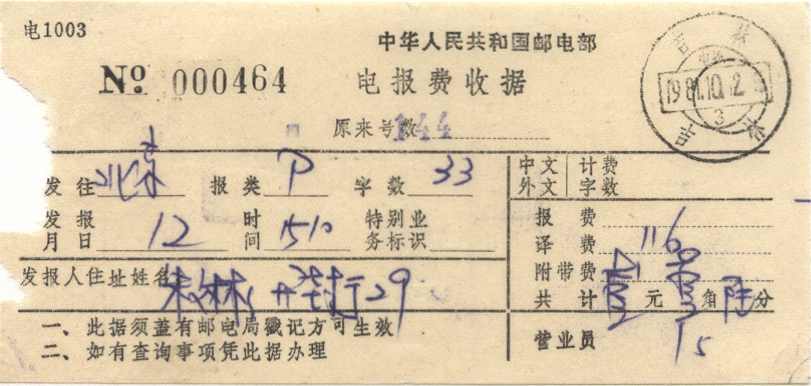 电1003
中华人民共和国邮电部
№ 000464
电报费收据
原来号数 144
吉林
1981.10.12
3
吉林
发往 北京 报类 P 字数 33
发报月日 12 时间 1510 特别业务标识
中文 外文 计费字数
报费
译费 116
附带费
共计 壹元壹角陆分
发报人住址姓名 29
一、此据须盖有邮电局戳记方可生效
二、如有查询事项凭此据办理
营业员